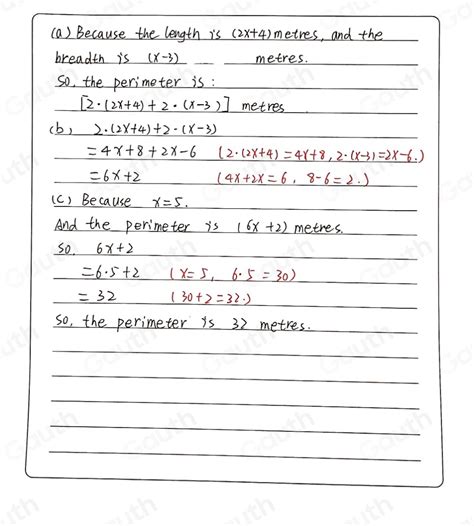 (a) Because the length is (2x+4) metres, and the
breadth is (x-3) metres.
So, the perimeter is :
[2·(2x+4)+2·(x-3)] metres
(b), 2·(2x+4)+2·(x-3)
=4x+8+2x-6 (2·(2x+4)=4x+8, 2·(x-3)=2x-6.)
=6x+2 (4x+2x=6, 8-6=2.)
(c) Because x=5.
And the perimeter is (6x+2) metres.
so, 6x+2
=6·5+2 (x=5, 6·5=30)
=32 (30+2=32.)
So, the perimeter is 32 metres.